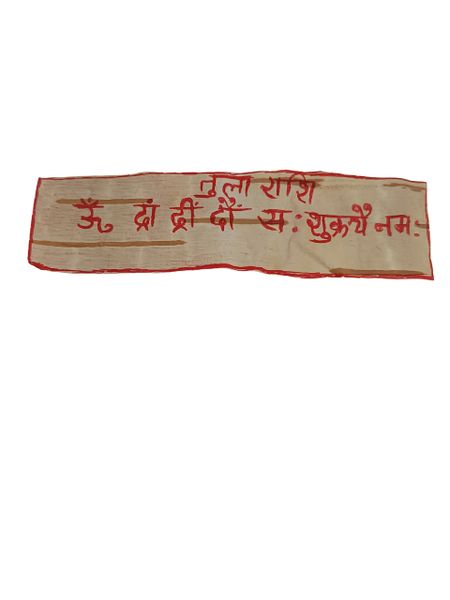 तुला राशि
ऊँ द्रां द्रीं दौं सः शुक्रयै नमः